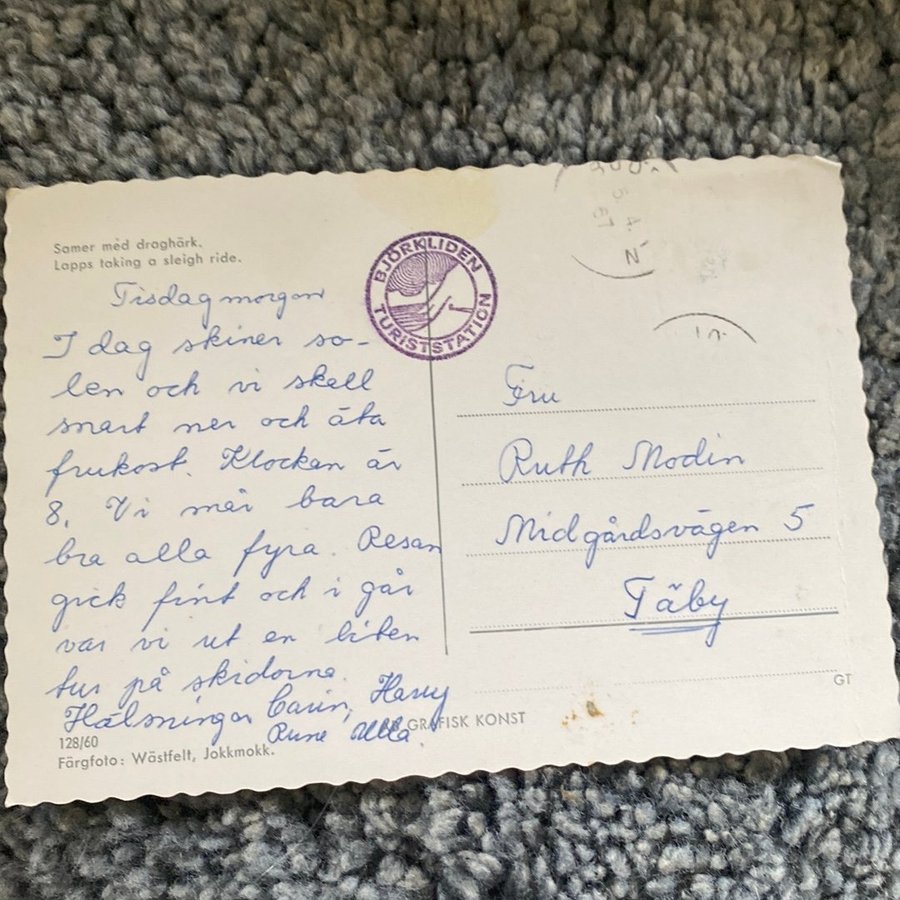 Samer med draghärk.
Lapps taking a sleigh ride.
BJÖRKLIDEN
TURISTSTATION
Tisdagmorgon
I dag skiner so-
len och vi skell
snart ner och äta
frukost. Klockan är
8. Vi mår bara
bra alla fyra. Resan
gick fint och i går
var vi ut en liten
tur på skidorna.
Hälsningar Carin, Harry
Rune Ulla.
128/60
Färgfoto: Wästfelt, Jokkmokk.
GRAFISK KONST
Fru
Ruth Modin
Midgårdsvägen 5
Täby
GT